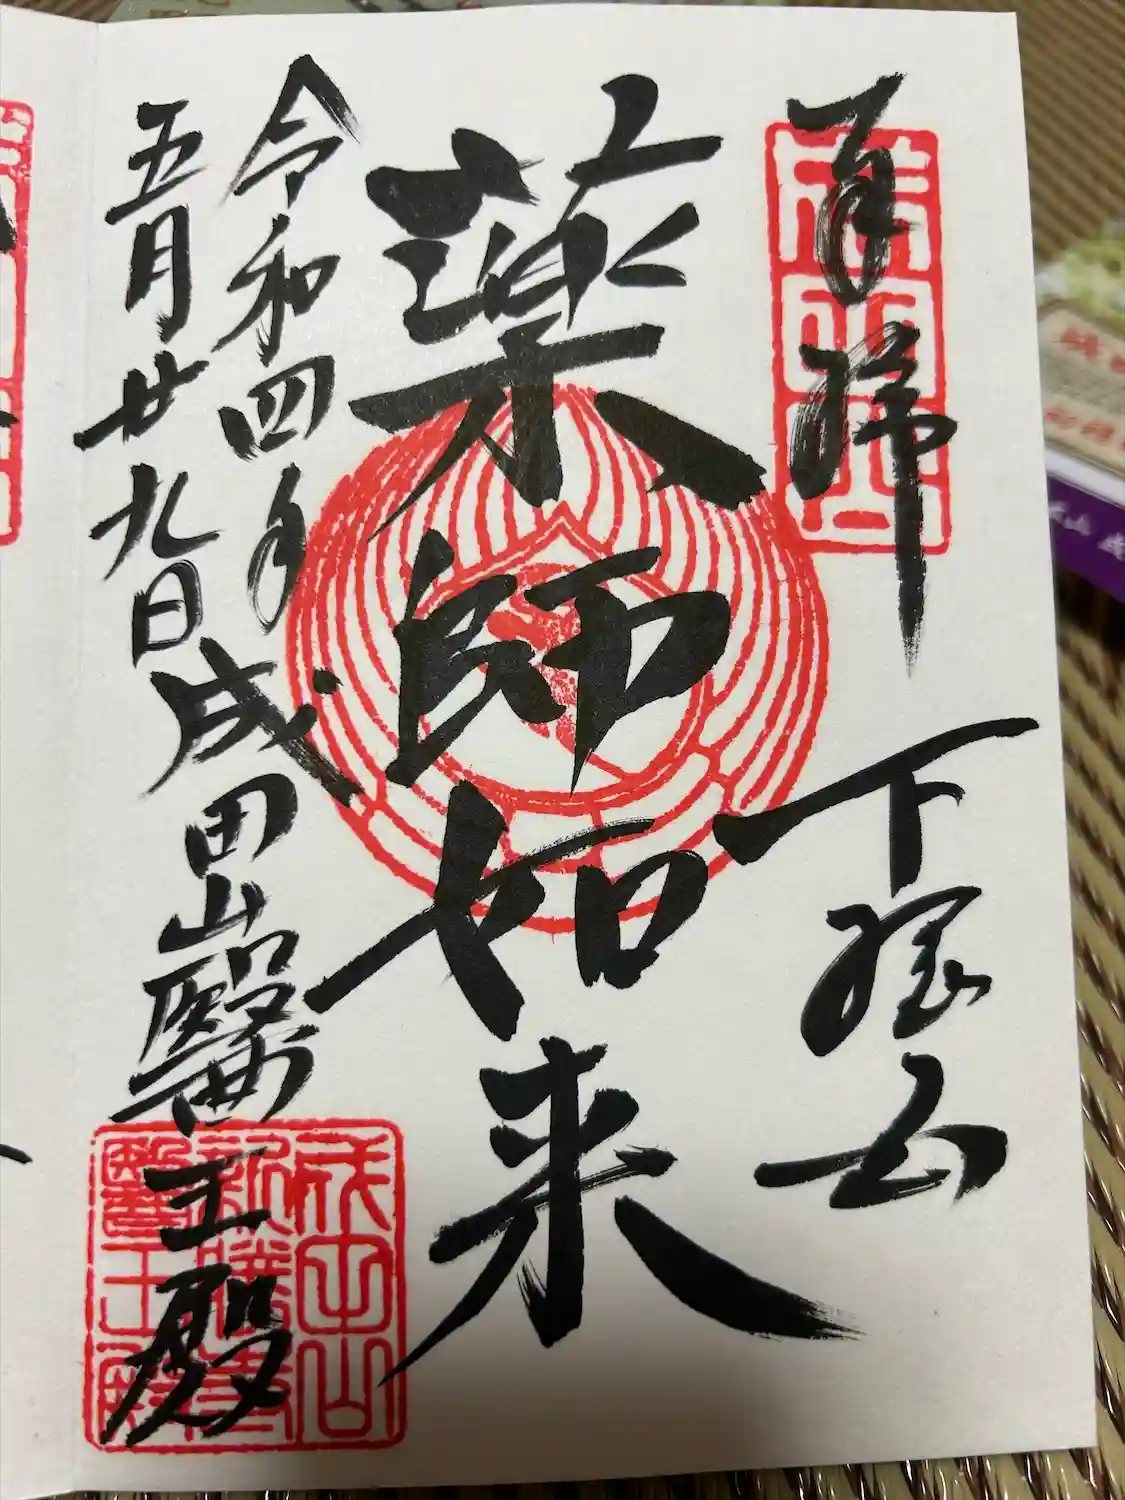 奉拝
下総国
薬師如来
令和四年
五月廿九日
成田山醫王殿
成田山
新勝寺
醫王殿